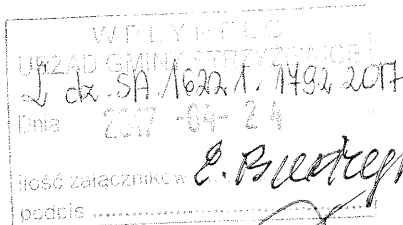 WPŁYNĘŁO
URZĄD GMINY STRZYŻEWICE
L dz. SA. 1622.1.1792.2017
Dnia 2017 -04- 24
ilość załączników
podpis